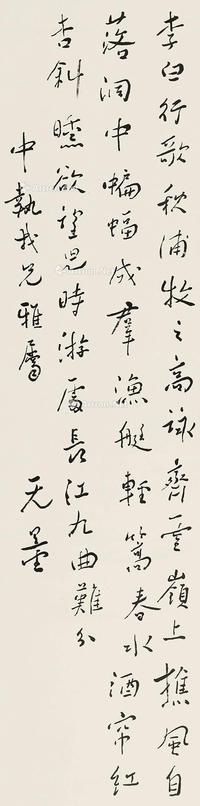 李白行歌秋浦牧之高詠齊雲嶺上樵風自
落洞中蝙蝠成羣漁艇輕篙春水酒帘紅
杏斜曛欲望兒時游處長江九曲難分
中執我兄雅屬 无量